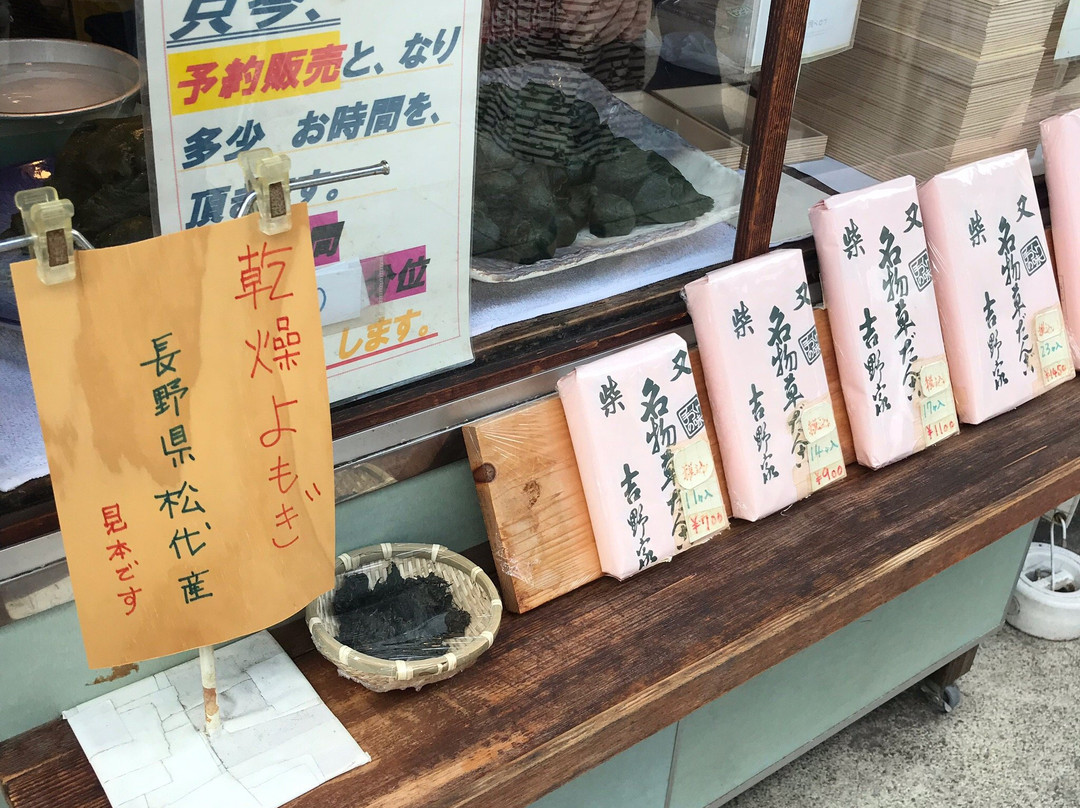 只今、
予約販売と、なり
多少 お時間を、
頂
す。
分位
します。
乾燥よもぎ
長野県松代産
見本です
又
名物草だんご
柴
吉野家
11入
¥700
又
名物草だんご
柴
吉野家
14入
¥900
又
名物草だんご
柴
吉野家
17入
¥1100
又
名物草だんご
柴
吉野家
23入
¥1450